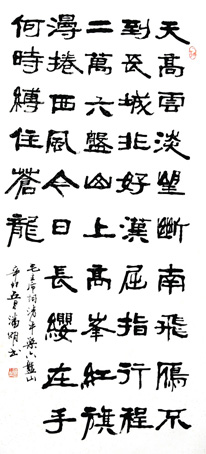 天高雲淡望斷南飛雁不
到長城非好漢屈指行程
二萬六盤山上高峯紅旗
漫捲西風今日長纓在手
何時縛住蒼龍
毛主席詞清平樂六盤山
五月潘書